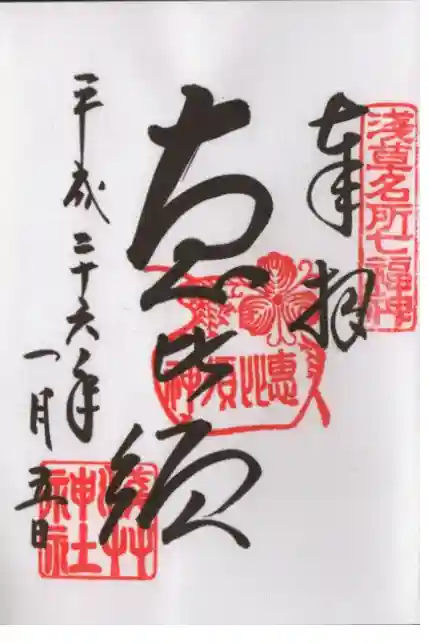 淺草名所七福神
奉拝
恵比須
恵比須神
平成二十六年
一月五日
浅草神社